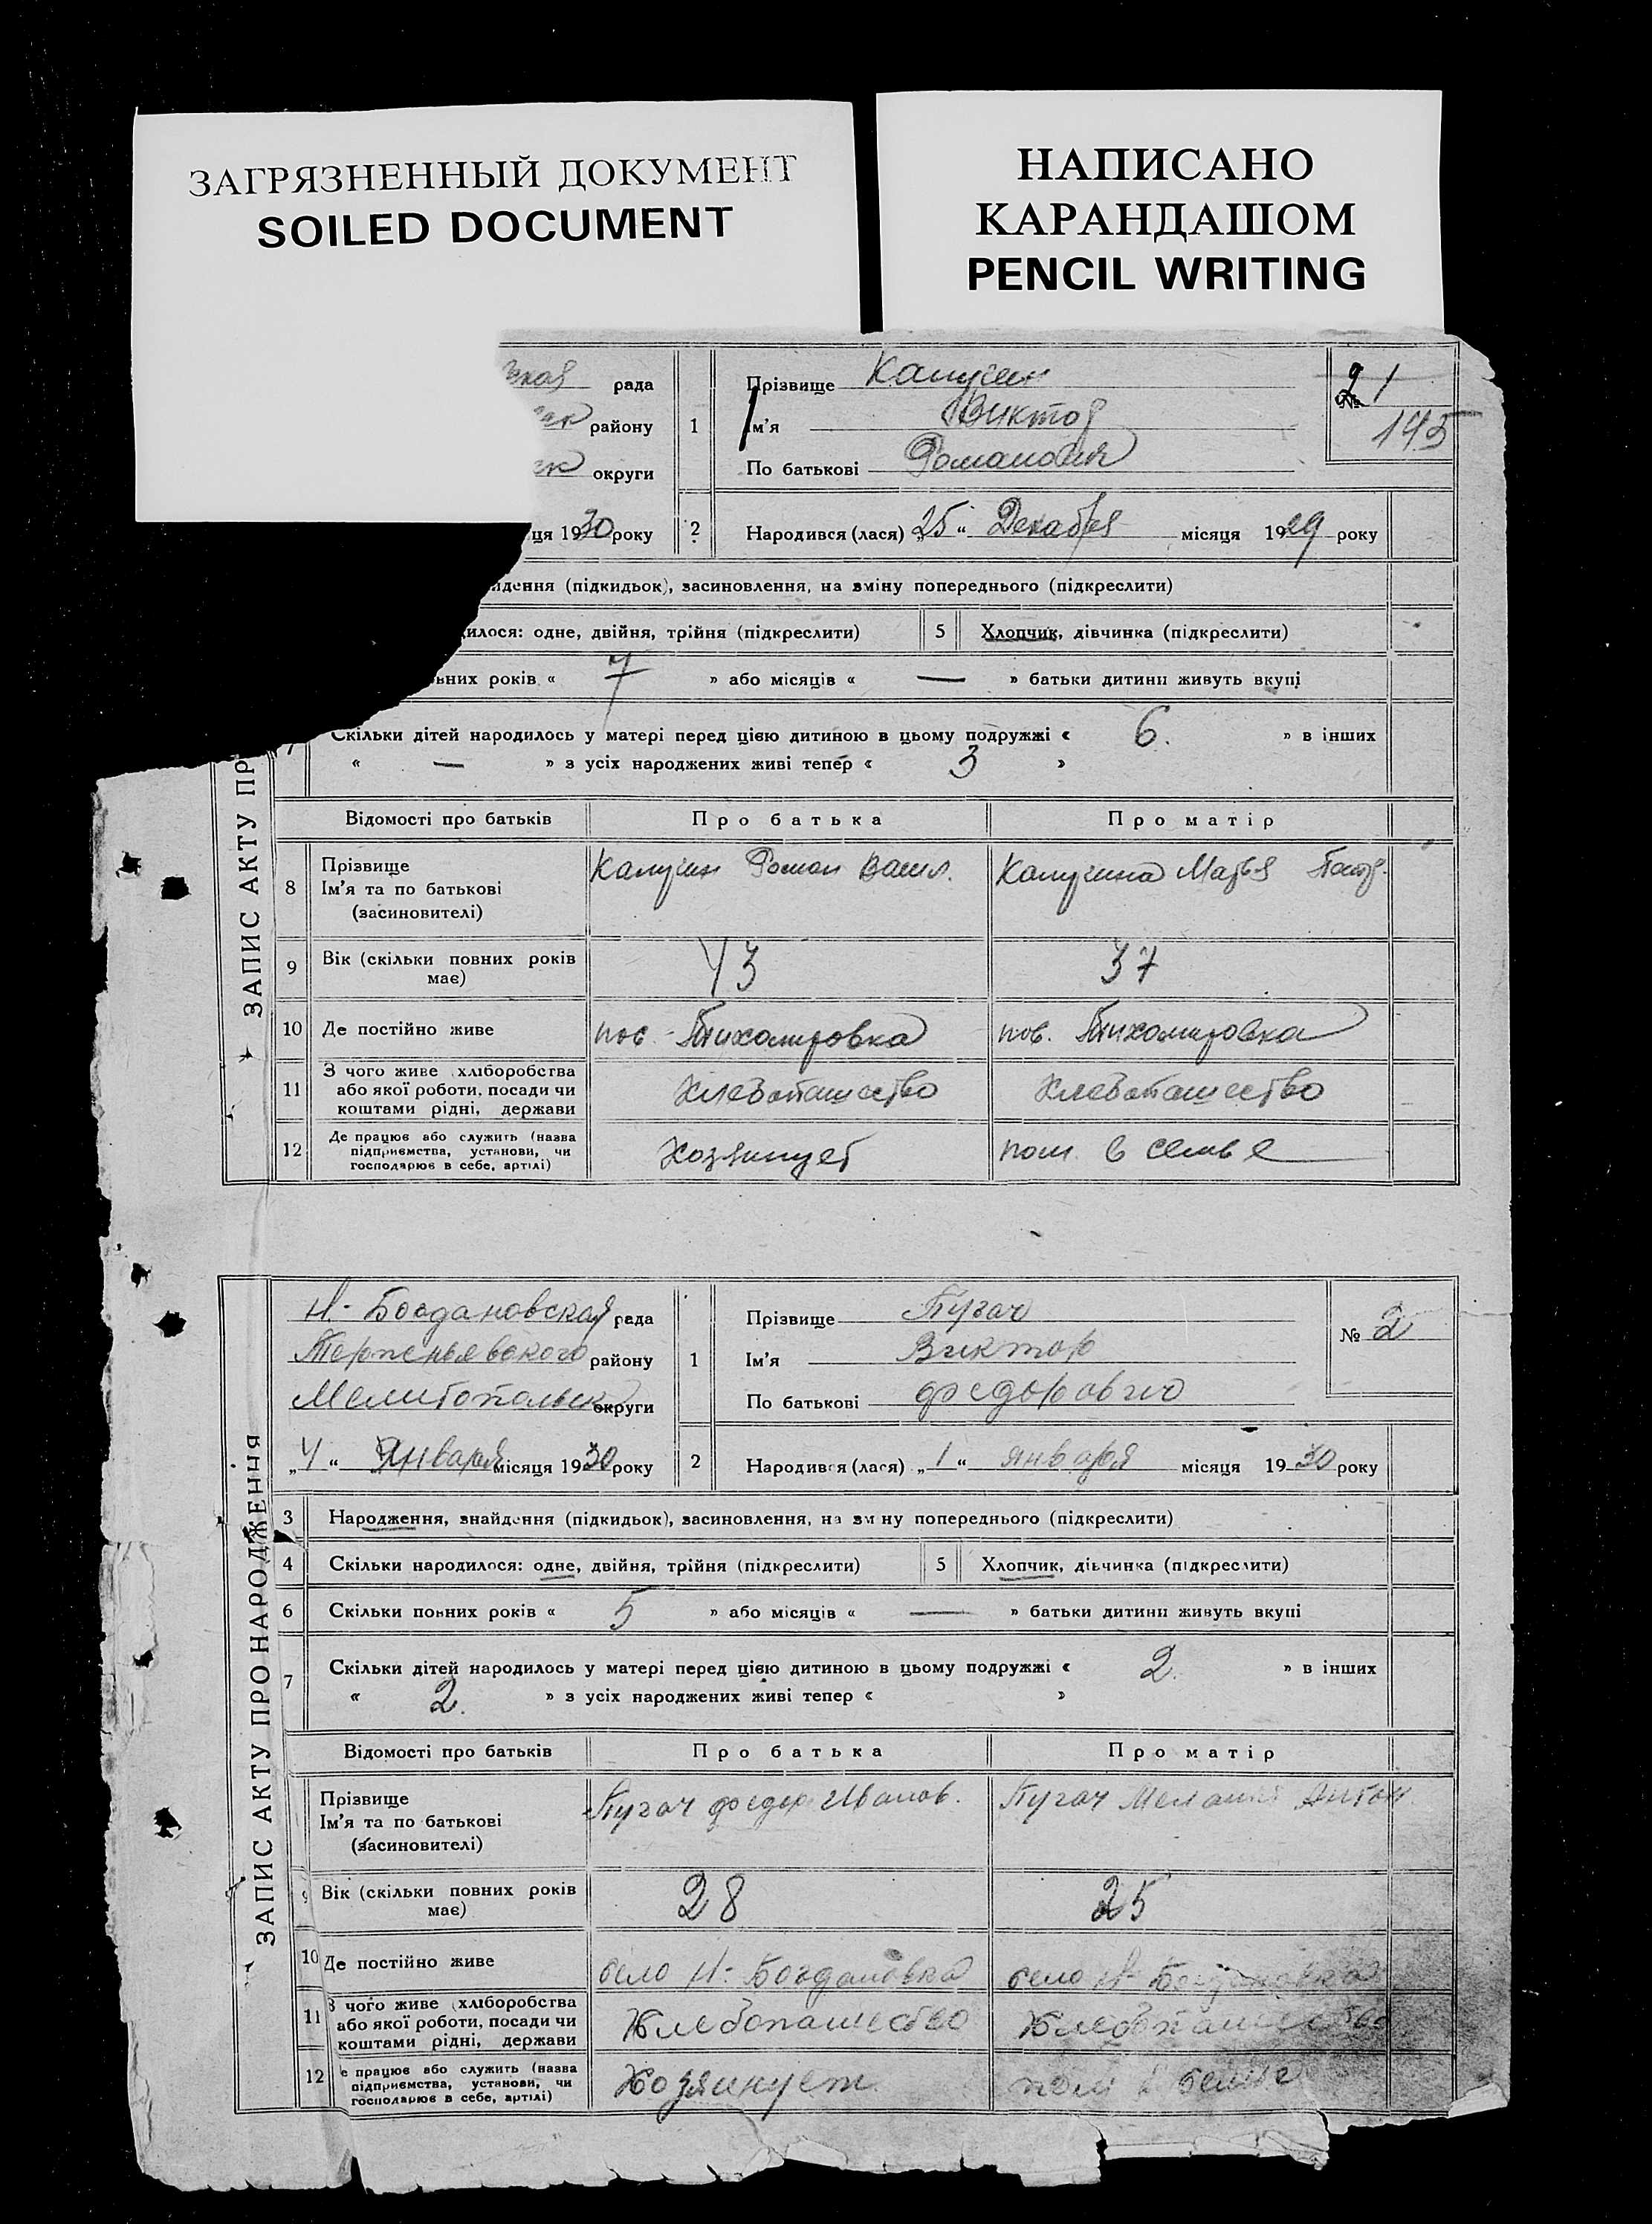 ЗАГРЯЗНЕННЫЙ ДОКУМЕНТ
SOILED DOCUMENT
НАПИСАНО
КАРАНДАШОМ
PENCIL WRITING
рада
району
округи
ця 1930 року
1
Прізвище Калугин
Ім'я Виктор
По батькові Романович
№ 1
145
2
Народився (лася) „25“ Декабря місяця 1929 року
йдення (підкидьок), засиновлення, на зміну попереднього (підкреслити)
илося: одне, двійня, трійня (підкреслити)
5 Хлопчик, дівчинка (підкреслити)
вних років « 7 » або місяців « — » батьки дитини живуть вкупі
Скільки дітей народилось у матері перед цією дитиною в цьому подружжі « 6. » в інших
« — » з усіх народжених живі тепер « 3 »
ЗАПИС АКТУ ПР
Відомості про батьків Про батька Про матір
8 Прізвище
Ім'я та по батькові
(засиновителі)
Калугин Роман Васил.
Калугина Марья
9 Вік (скільки повних років
має)
43
37
10 Де постійно живе
пос. Тихомировка
пос. Тихомировка
11 З чого живе (хліборобства
або якої роботи, посади чи
коштами рідні, держави
Хлебопашество
Хлебопашество
12 Де працює або служить (назва
підприємства, установи, чи
господарює в себе, артілі)
Хозяинует
пом. в семье
ЗАПИС АКТУ ПРО НАРОДЖЕННЯ
Н-Богдановская рада
Терпеньевского району
округи
„4“ Января місяця 1930 року
1
Прізвище Пугач
Ім'я Виктор
По батькові Федорович
№ 2
2
Народився (лася) „1“ января місяця 1930 року
3 Народження, знайдення (підкидьок), засиновлення, на зміну попереднього (підкреслити)
4 Скільки народилося: одне, двійня, трійня (підкреслити)
5 Хлопчик, дівчинка (підкреслити)
6 Скільки повних років « 5 » або місяців « — » батьки дитини живуть вкупі
7 Скільки дітей народилось у матері перед цією дитиною в цьому подружжі « 2. » в інших
« 2. » з усіх народжених живі тепер « »
Відомості про батьків Про батька Про матір
Прізвище
Ім'я та по батькові
(засиновителі)
Пугач Федор Иванов.
Пугач Мелания Антон.
9 Вік (скільки повних років
має)
28
25
10 Де постійно живе
село Н-Богдановка
село Н-Богдановка
11 З чого живе (хліборобства
або якої роботи, посади чи
коштами рідні, держави
Хлебопашество
Хлебопашество
12 е працює або служить (назва
підприємства, установи, чи
господарює в себе, артілі)
Хозяинует
пом в семье